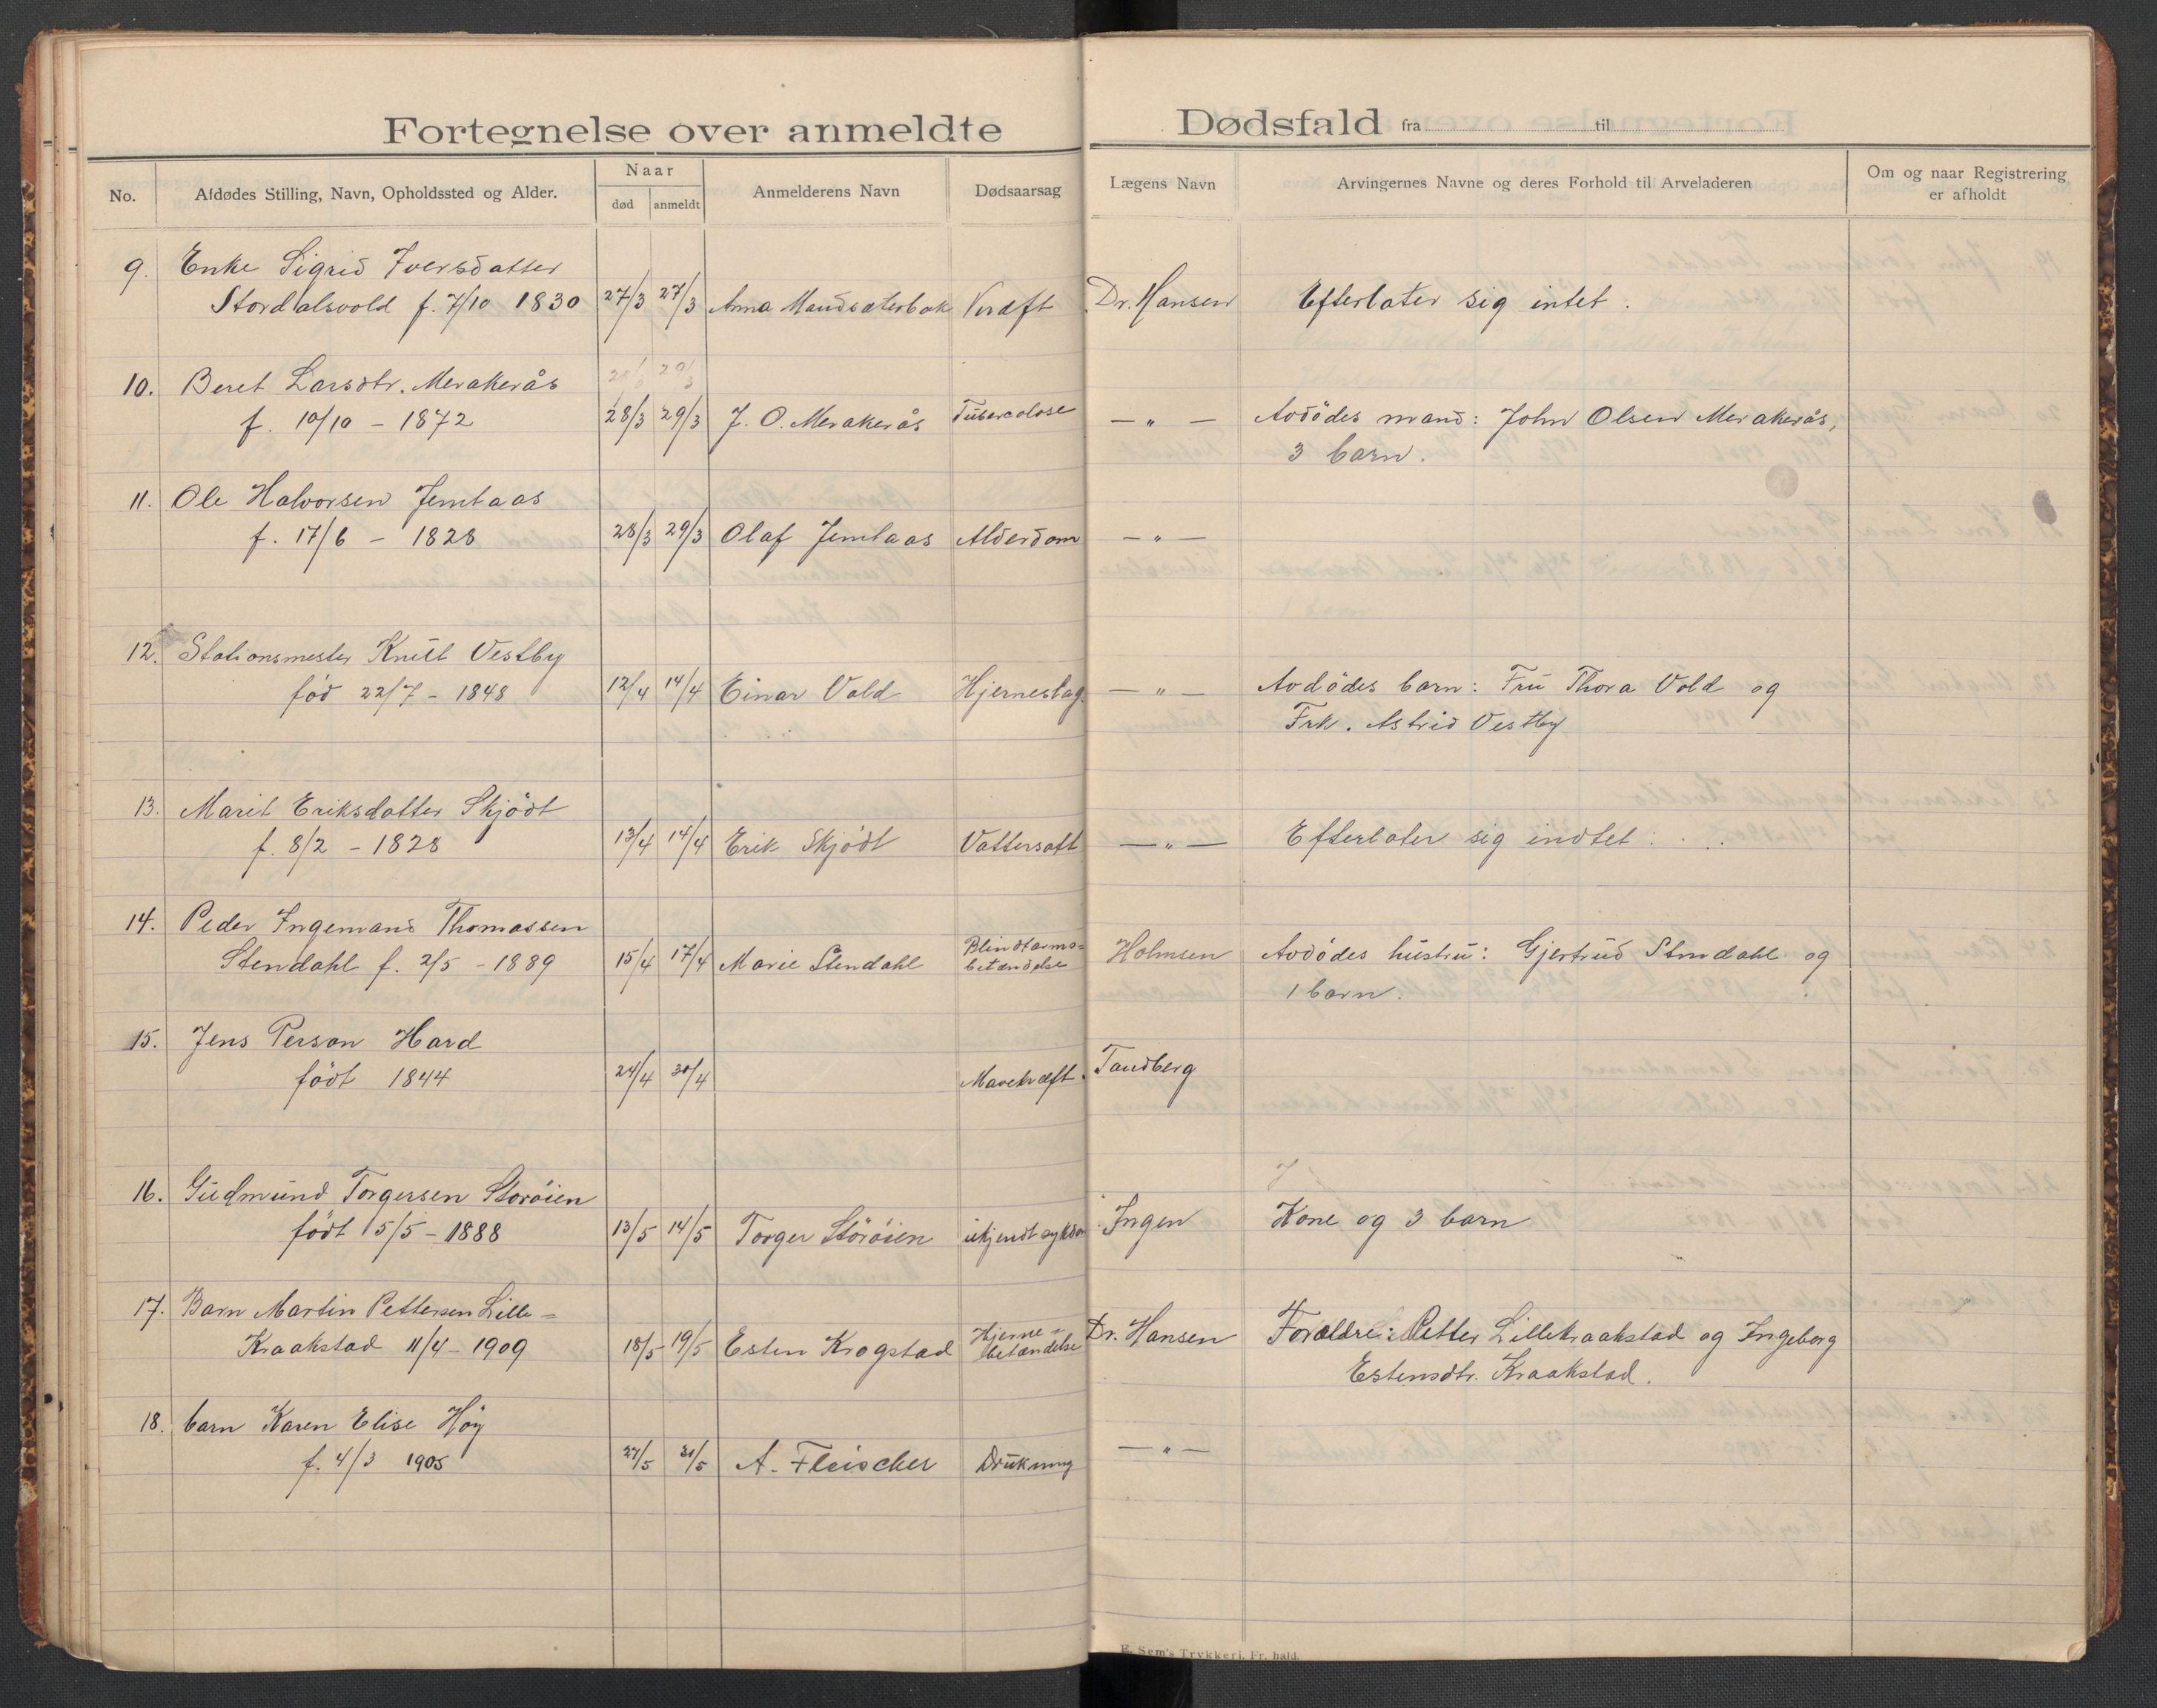 Fortegnelse over anmeldte Dødsfald fra til
No. Afdødes Stilling, Navn, Opholdssted og Alder. Naar død anmeldt Anmelderens Navn Dødsaarsag Lægens Navn Arvingernes Navne og deres Forhold til Arveladeren Om og naar Registrering er afholdt
9. Enke Sigrid Iversdatter
Stordalsvold f. 7/10 1830 27/3 27/3 Anna Mandsæterbak Kræft Dr. Hansen Efterlater sig intet.
10. Beret Larsdtr. Merakerås
f. 10/10 - 1872 28/3 29/3 J. O. Merakerås Tuberculose — " — Avdödes mand: John Olsen Merakerås,
3 barn.
11. Ole Halvorsen Jemtaas
f. 17/6 - 1828 28/3 29/3 Olaf Jemtaas Alderdom — " —
12. Stationsmester Knut Vestby
föd 22/7 - 1848 12/4 14/4 Einar Vold Hjerneslag. — " — Avdödes barn: Fru Thora Vold og
Frk. Astrid Vestby
13. Marit Eriksdatter Skjödt
f. 8/2 - 1828 13/4 14/4 Erik Skjödt Vattersott — " — Efterlater sig indtet.
14. Peder Ingemand Thomassen
Stendahl f. 2/5 - 1889 15/4 17/4 Marie Stendahl Blindtarms=
betændelse Holmsen Avdödes hustru: Gjertrud Stendahl og
1 barn.
15. Jens Person Hard
födt 1844 24/4 30/4 Mavekræft. Tandberg
16. Gudmund Torgersen Storöien
födt 15/5 - 1888 13/5 14/5 Torger Störöien ukjendt sykdom Ingen Kone og 3 barn
17. Barn Martin Pettersen Lille=
Kraakstad 11/4 - 1909 18/5 19/5 Esten Krogstad Hjerne=
betændelse Dr. Hansen Forældre: Petter Lillekraakstad og Ingeborg
Estensdtr. Kraakstad.
18. barn Karen Elise Höy
f. 4/3 1905 27/5 31/5 A. Fleischer Drukning — " —
E. Sem's Trykkeri, Fr. hald.